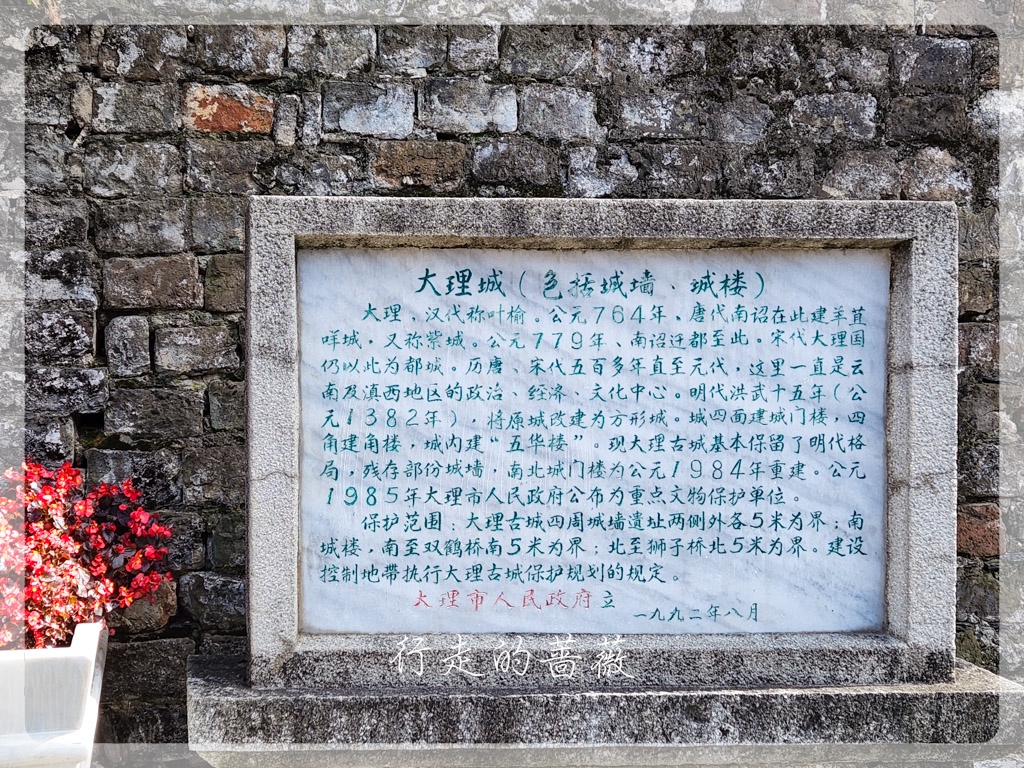 大理城（包括城墙、城楼）
大理，汉代称叶榆。公元764年，唐代南诏在此建羊苴
咩城，又称紫城。公元779年、南诏迁都至此。宋代大理国
仍以此为都城。历唐、宋代五百多年直至元代，这里一直是云
南及滇西地区的政治、经济、文化中心。明代洪武十五年（公
元1382年），将原城改建为方形城。城四面建城门楼，四
角建角楼，城内建“五华楼”。现大理古城基本保留了明代格
局，残存部份城墙，南北城门楼为公元1984年重建。公元
1985年大理市人民政府公布为重点文物保护单位。
保护范围：大理古城四周城墙遗址两侧外各5米为界；南
城楼，南至双鹤桥南5米为界；北至狮子桥北5米为界。建设
控制地带执行大理古城保护规划的规定。
大理市人民政府立
一九九二年八月
行走的蔷薇